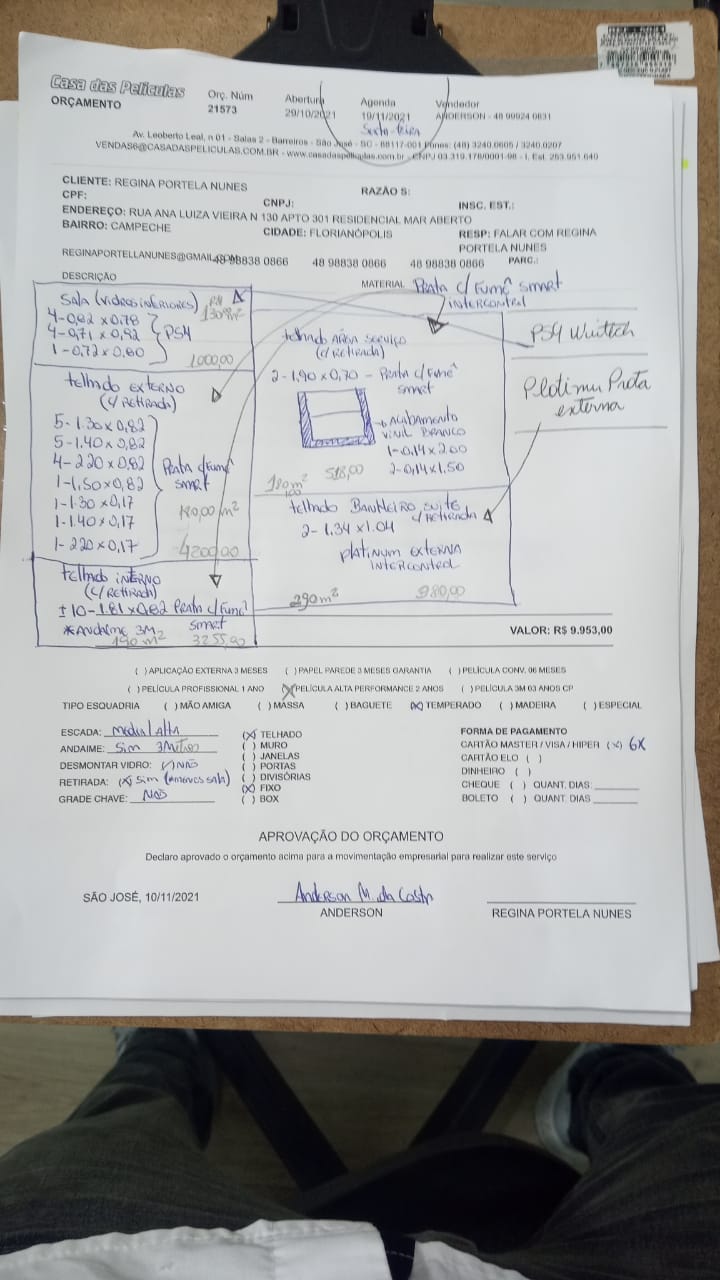 Casa das Películas
ORÇAMENTO
Orç. Núm
21573
Abertura
29/10/2021
Agenda
19/11/2021
Sexta-feira
Vendedor
ANDERSON - 48 99924 0631
Av. Leoberto Leal, n 01 - Salas 2 - Barreiros - São José - SC - 88117-001 Fones: (48) 3240.0605 / 3240.0207
VENDAS6@CASADASPELICULAS.COM.BR - www.casadaspeliculas.com.br - CNPJ 03.319.178/0001-98 - I. Est. 253.951.640
CLIENTE: REGINA PORTELA NUNES
RAZÃO S:
CPF:
CNPJ:
INSC. EST.:
ENDEREÇO: RUA ANA LUIZA VIEIRA N 130 APTO 301 RESIDENCIAL MAR ABERTO
BAIRRO: CAMPECHE
CIDADE: FLORIANÓPOLIS
RESP: FALAR COM REGINA
PORTELA NUNES
REGINAPORTELLANUNES@GMAIL.COM
48 98838 0866
48 98838 0866
48 98838 0866
PARC.:
DESCRIÇÃO
MATERIAL
Prata c/ Fumê smart
INTERCONTROL
Sala (vidros inferiores)
4-0,82 x 0,78
4-0,71 x 0,82
1-0,72 x 0,80
PS4
1000,00
telhado ÁREA SERVIÇO
(c/ RETIRADA)
2-1.90 x 0,70 - Prata c/ Fumê
smart
Acabamento
VINIL BRANCO
1-0,14 x 2.00
2-0,14 x 1.50
518,00
PS4 Wintech
Platinum Prata
externa
telhado EXTERNO
(c/ RETIRADA)
5-1.30 x 0,82
5-1.40 x 0,82
4-2.20 x 0,82
1-1,50 x 0,82
1-1.30 x 0,17
1-1.40 x 0,17
1-2.20 x 0,17
Prata c/ Fumê
smart
180,00 m²
4200,00
telhado Banheiro suíte
c/ RETIRADA
2-1.34 x 1.04
platinum EXTERNA
INTERCONTROL
290 m²
980,00
telhado INTERNO
(c/ RETIRADA)
±10-1.81 x 0,82 Prata c/ Fumê
smart
*Andaime 3M
190 m²
3255,00
VALOR: R$ 9.953,00
( ) APLICAÇÃO EXTERNA 3 MESES ( ) PAPEL PAREDE 3 MESES GARANTIA ( ) PELÍCULA CONV. 06 MESES
( ) PELÍCULA PROFISSIONAL 1 ANO (X) PELÍCULA ALTA PERFORMANCE 2 ANOS ( ) PELÍCULA 3M 03 ANOS CP
TIPO ESQUADRIA ( ) MÃO AMIGA ( ) MASSA ( ) BAGUETE (X) TEMPERADO ( ) MADEIRA ( ) ESPECIAL
ESCADA: média/Alta
ANDAIME: Sim 3Metros
DESMONTAR VIDRO: ( ) NÃO
RETIRADA: (X) Sim (menos sala)
GRADE CHAVE: NÃO
(X) TELHADO
( ) MURO
( ) JANELAS
( ) PORTAS
( ) DIVISÓRIAS
(X) FIXO
( ) BOX
FORMA DE PAGAMENTO
CARTÃO MASTER / VISA / HIPER (X) 6X
CARTÃO ELO ( )
DINHEIRO ( )
CHEQUE ( ) QUANT. DIAS:
BOLETO ( ) QUANT. DIAS
APROVAÇÃO DO ORÇAMENTO
Declaro aprovado o orçamento acima para a movimentação empresarial para realizar este serviço
SÃO JOSÉ, 10/11/2021
Anderson M. da Costa
ANDERSON
REGINA PORTELA NUNES